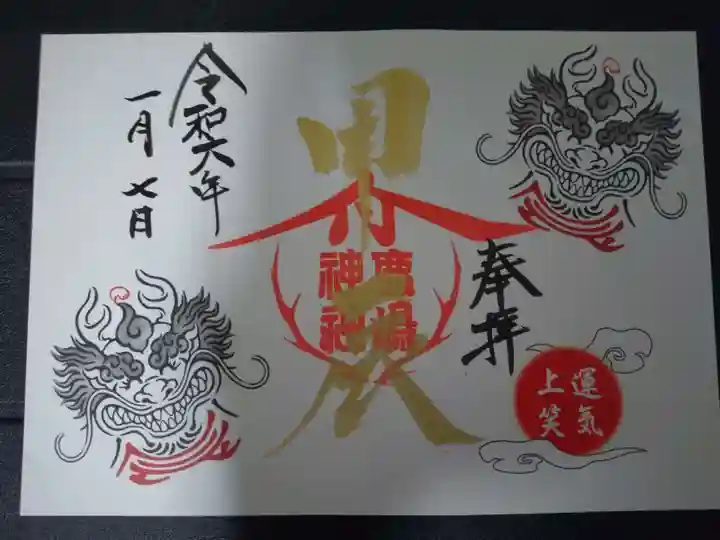 奉拝
運氣
上笑
甲辰
鹿嶋
神社
令和六年
一月七日